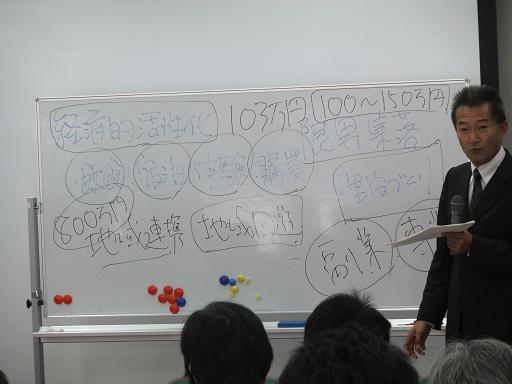 経済的活性化 103万円 100〜150万円
限界集落
飲食 宿泊 体験 購買
理由づくり!
800万円
地域連携 地域回游
副業